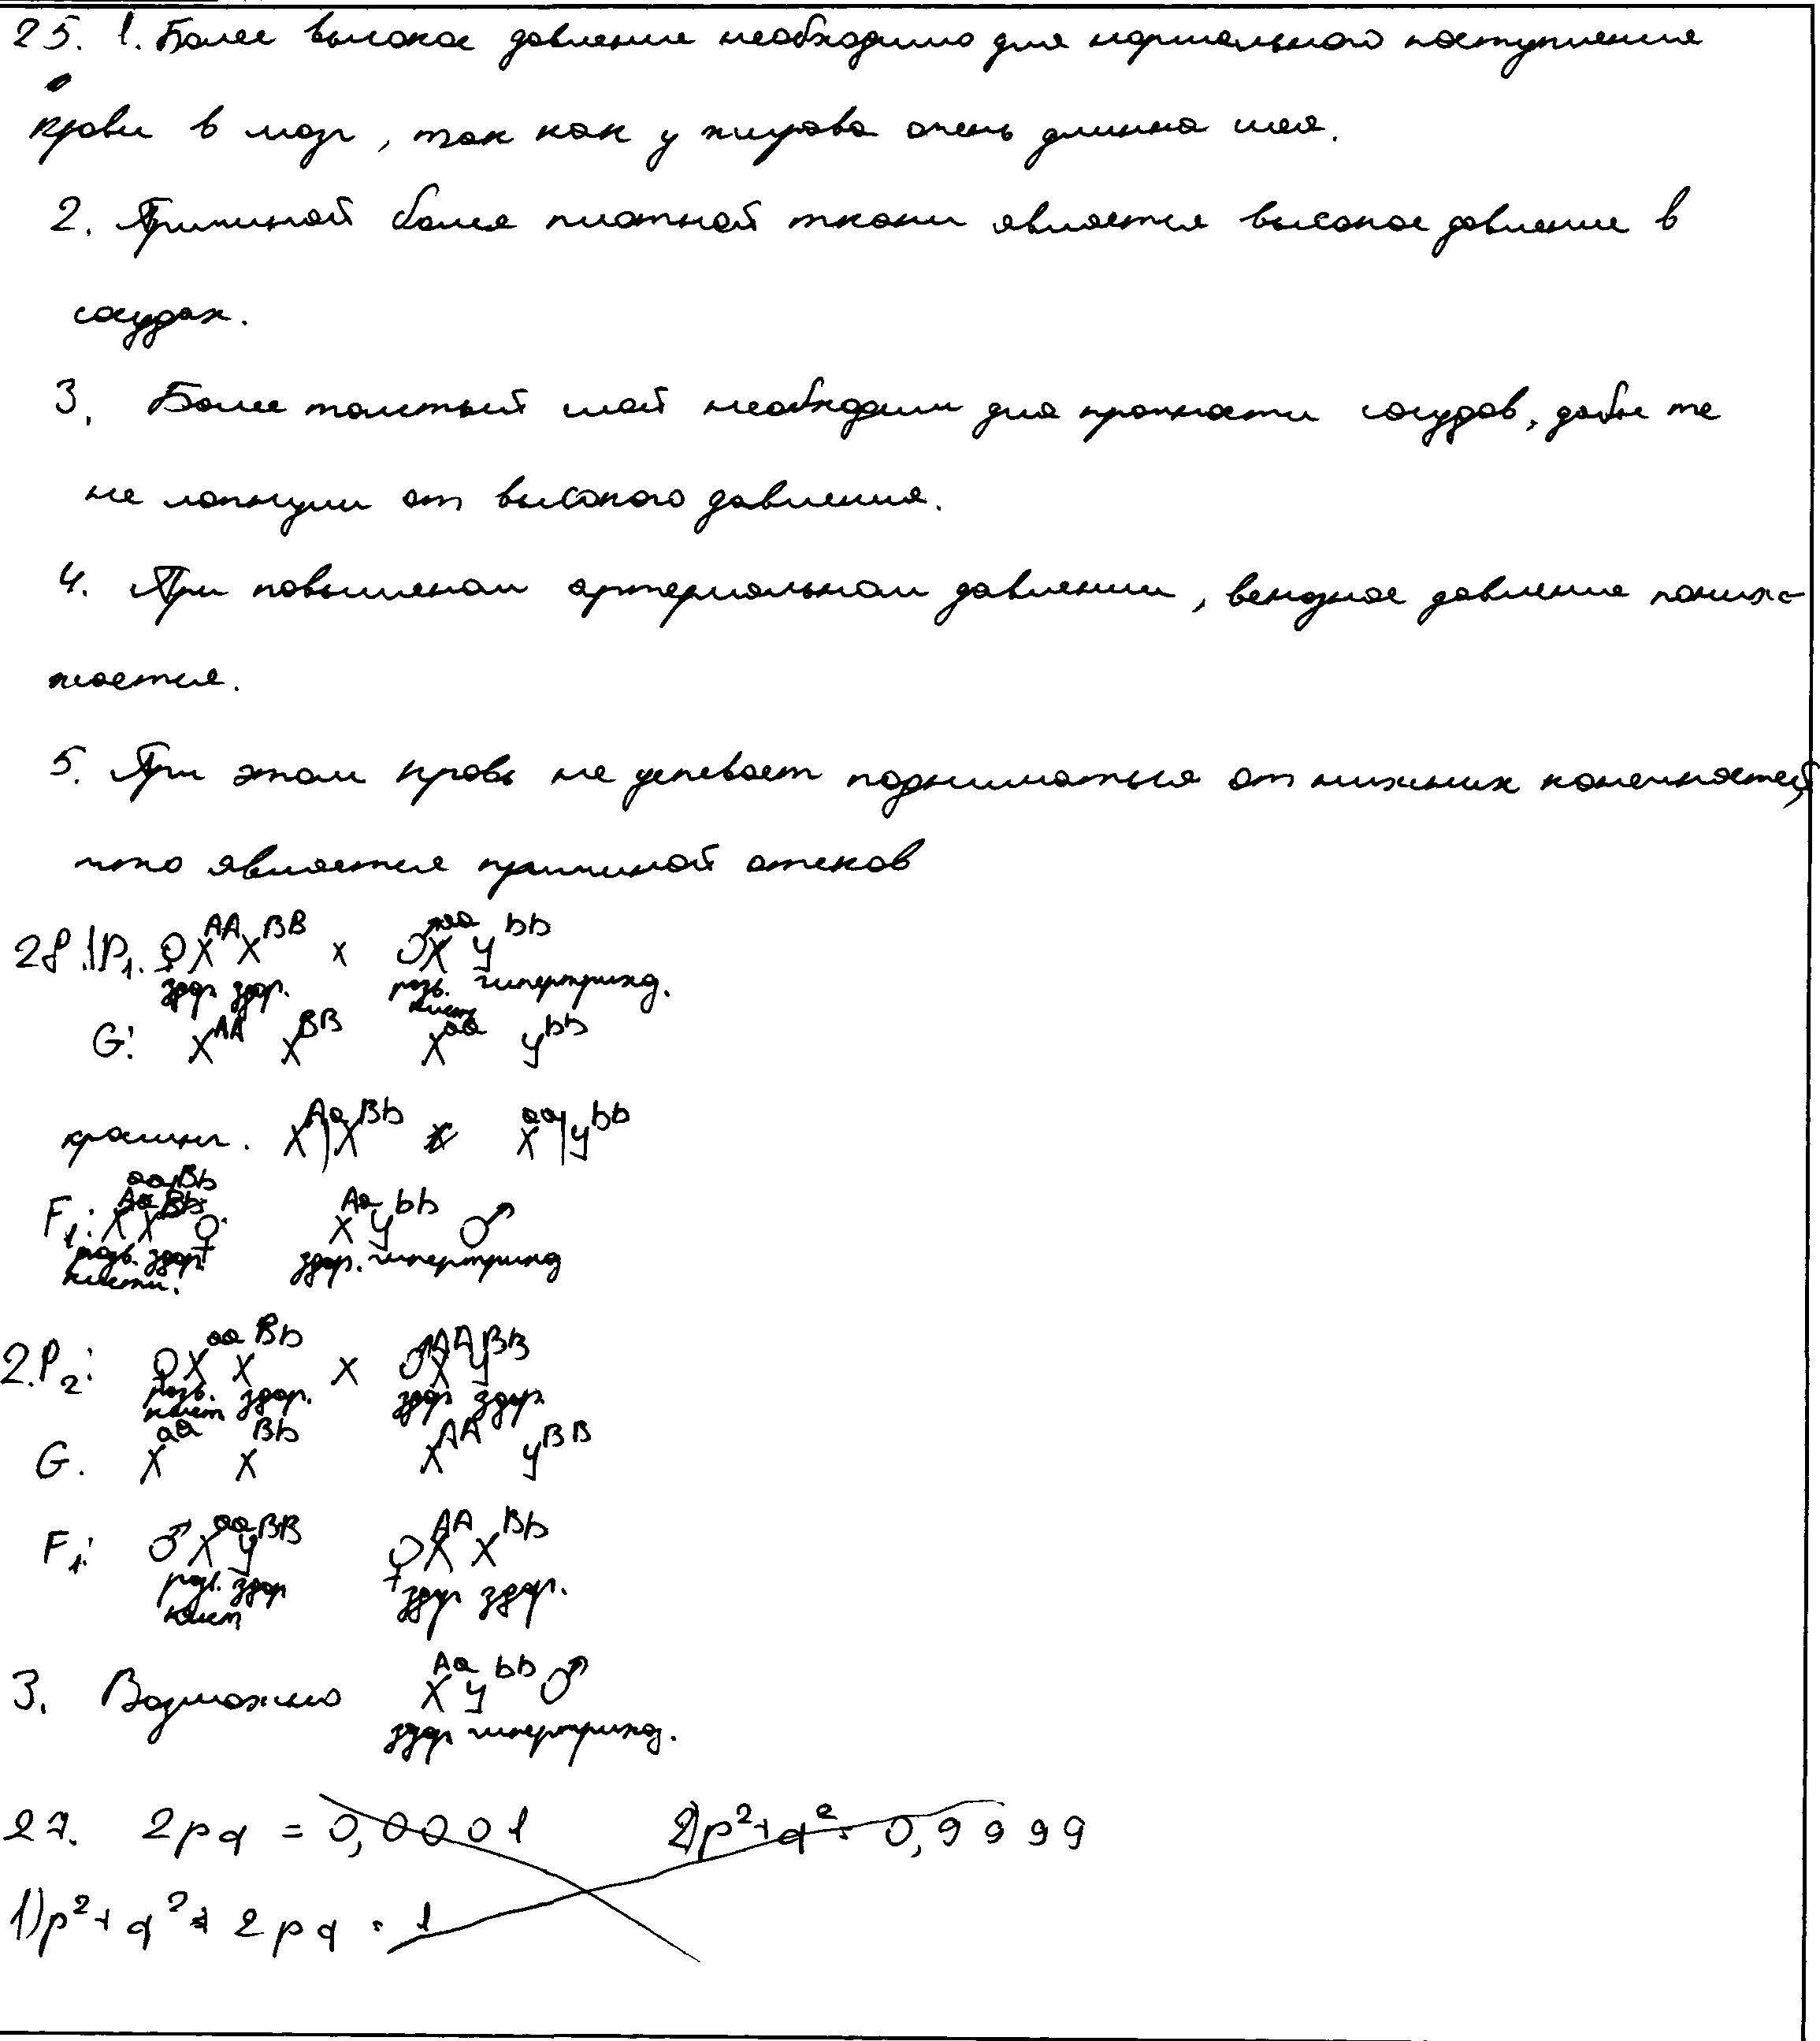 25. 1. Более высокое давление необходимо для нормального поступления
крови в мозг, так как у жирафа очень длинная шея.
2. Причиной более плотной ткани является высокое давление в
сосудах.
3. Более толстый слой необходим для прочности сосудов, дабы те
не лопнули от высокого давления.
4. При повышеном артериальном давлении, венозное давление пониж-
жается.
5. При этом кровь не успевает подниматься от нижних конечностей,
что является причиной отеков
28. 1P₁. ♀X^AA X^BB x ♂X^aa Y^bb
здор. здор. разв. кист. гипертрихоз.
G: X^AA X^BB X^aa Y^bb
кроссинг. X^Aa|X^Bb X^aa|Y^bb
F₁: X X^aaBb ♀ X^Aa Y^bb ♂
разв. кисти. здор. здор. гипертрихоз
2.P₂: ♀X^aa X^Bb x ♂X^AA Y^BB
разв. кист здор. здор здор.
G. X^aa X^Bb X^AA Y^BB
F₁: ♂X^aa Y^BB ♀X^AA X^Bb
разв. кист здор здор здор.
3. Возможно X^Aa Y^bb ♂
здор гипертрихоз.
27. 2pq = 0,0001 2)p²+q² = 0,9999
1)p²+q²+2pq = 1